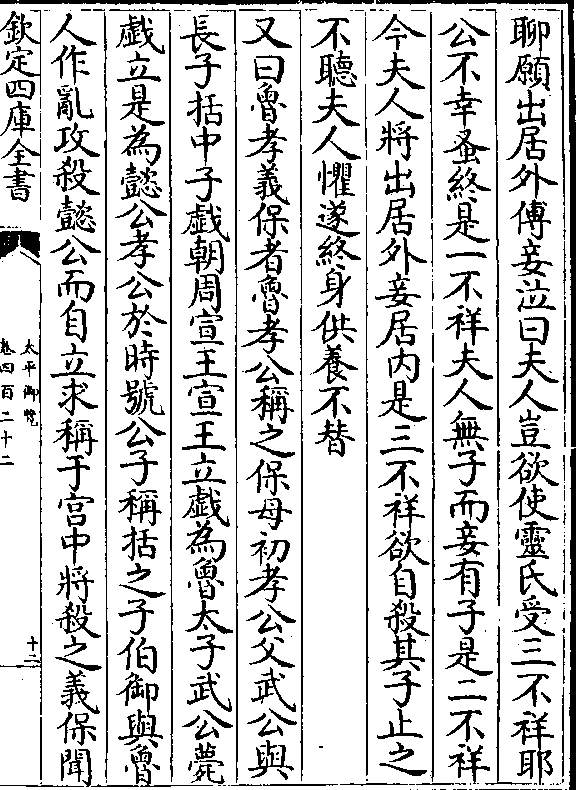 聊願出居外傅妾泣曰夫人豈欲使靈氏受三不祥耶
公不幸蚤終是一不祥夫人無子而妾有子是二不祥
今夫人將出居外妾居内是三不祥欲自殺其子止之
不聽夫人懼遂終身供養不替
又曰魯孝義保者魯孝公稱之保母初孝公父武公與
長子括中子戯朝周宣王宣王立戯為魯太子武公薨
戯立是為懿公孝公於時號公子稱括之子伯御與魯
人作亂攻殺懿公而自立求稱于宫中將殺之義保聞
欽定四庫全書
太平御覽
卷四百二十二
十三